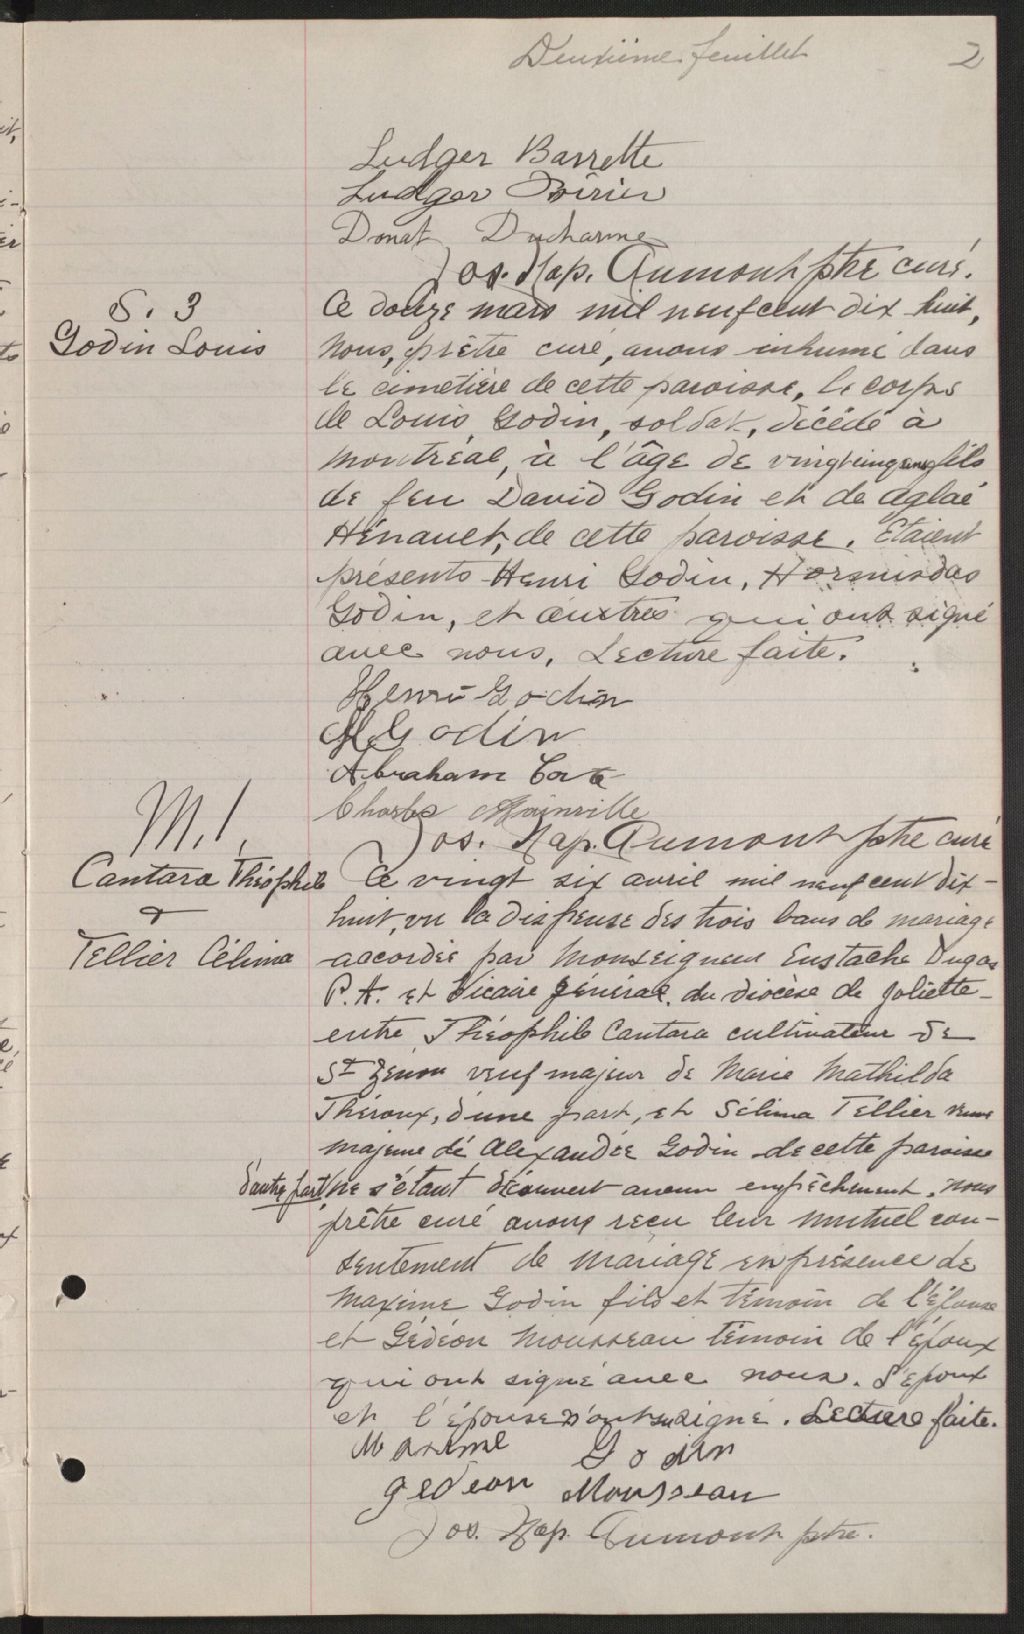 Deuxième feuillet 2
Ludger Barrette
Ludger Poirier
Donat Ducharme
Jos. Nap. Aumont ptre curé.
S. 3
Godin Louis
Ce douze mars mil neuf cent dix huit,
nous, prêtre curé, avons inhumé dans
le cimetière de cette paroisse, le corps
de Louis Godin, soldat, décédé à
Montréal, à l'âge de vingt cinq ans, fils
de feu David Godin et de Aglaé
Hénault, de cette paroisse. Etaient
présents Henri Godin, Hormisdas
Godin, et autres qui ont signé
avec nous. Lecture faite.
Henri Godin
H Godin
Abraham
Charles Mainville
Jos. Nap. Aumont ptre curé
M. 1.
Cantara Théophile
&
Tellier Célima
Ce vingt six avril mil neuf cent dix-
huit, vu la dispense des trois bans de mariage
accordée par Monseigneur Eustache Dugas
P. A. et Vicaire général du diocèse de Joliette
entre Théophile Cantara cultivateur de
St Zénon veuf majeur de Marie Mathilda
Théroux, d'une part, et Sélima Tellier veuve
majeure de Alexandre Godin de cette paroisse
d'autre part, ne s'étant découvert aucun empêchement, nous
prêtre curé avons reçu leur mutuel con-
sentement de mariage en présence de
Maxime Godin fils et témoin de l'épouse
et Gédéon Mousseau témoin de l'époux
qui ont signé avec nous. L'époux
et l'épouse n'ont su signé. Lecture faite.
Maxime Godin
Gédéon Mousseau
Jos. Nap. Aumont ptre.